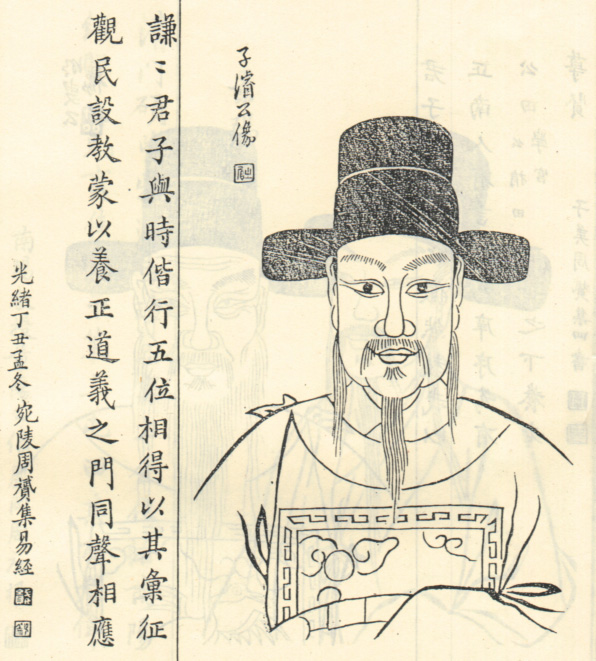 子濬公像
謙〻君子與時偕行五位相得以其彙征
觀民設教蒙以養正道義之門同聲相應
光緒丁丑孟冬 宛陵周贇集易經